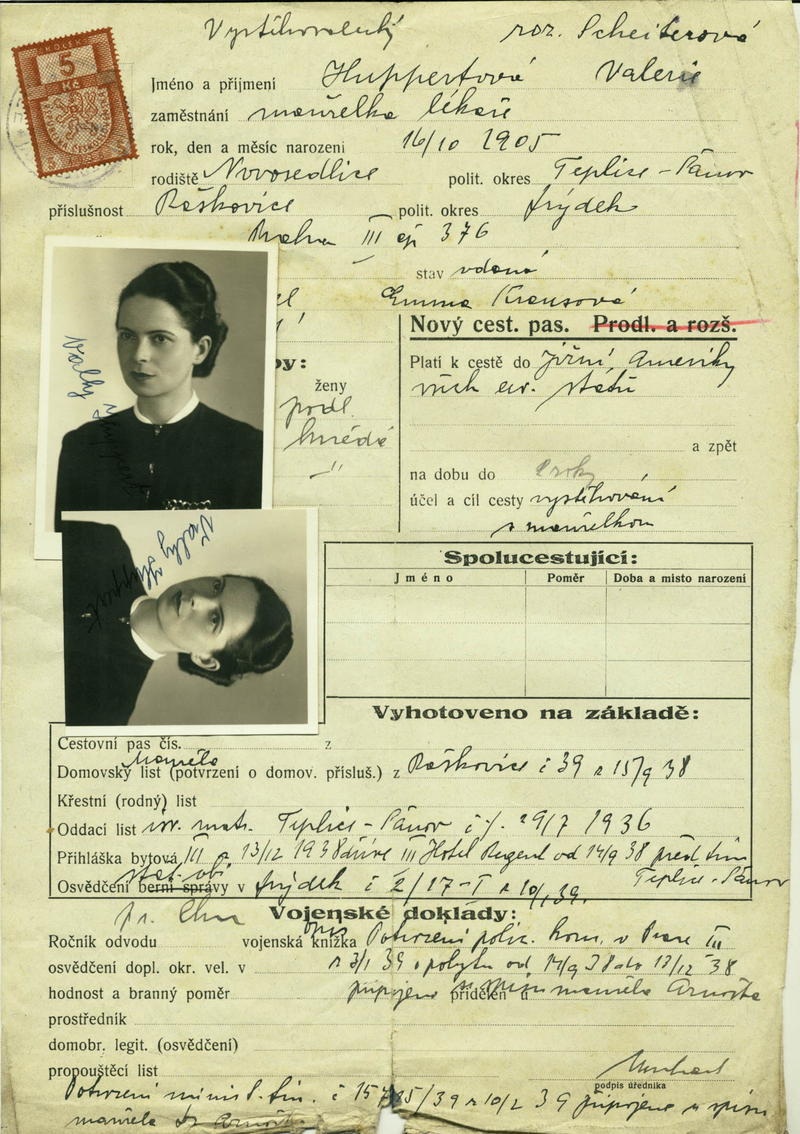 Vystěhovalecký roz. Scheiterová
5
Kč
Jméno a příjmení Huppertová Valerie
zaměstnání manželka lékaře
rok, den a měsíc narození 16/10 1905
rodiště Novosedlice polit. okres Teplice-Šanov
příslušnost Raškovice polit. okres Frýdek
Praha III čp 376
stav vdaná
Emma Krausová
Nový cest. pas. Prodl. a rozš.
Platí k cestě do Jižní Ameriky
všech ev. států
a zpět
na dobu do 2 roky
účel a cíl cesty vystěhování
s manželkou
by:
ženy
podl.
hnědé
"
Vally Huppert
Vally Huppert
Spolucestující:
Jméno Poměr Doba a místo narození
Vyhotoveno na základě:
Cestovní pas čís. z
manžela
Domovský list (potvrzení o domov. přísluš.) z Raškovice č 39 z 15/9 38
Křestní (rodný) list
Oddací list izr. matr. Teplice-Šanov č /. 29/7 1936
Přihláška bytová III z 13/12 1938 dříve III Hotel Regent od 14/9 38 předtím
Teplice-Šanov
stat. ob.
Osvědčení berní správy v Frýdek č 2/17-I z 10/1 39.
Vojenské doklady:
opis
Ročník odvodu vojenská knížka Potvrzení polic. kom. v Praze III
osvědčení dopl. okr. vel. v z 3/1 39 o pobytu od 14/9 38 do 13/12 38
hodnost a branný poměr připojeno přidělen u u spisu manžela Arnošta
prostředník
domobr. legit. (osvědčení)
propouštěcí list
podpis úředníka
Potvrzení minist. fin. č 15785/39 z 10/2 39 připojeno u spisu
manžela Dr Arnošta